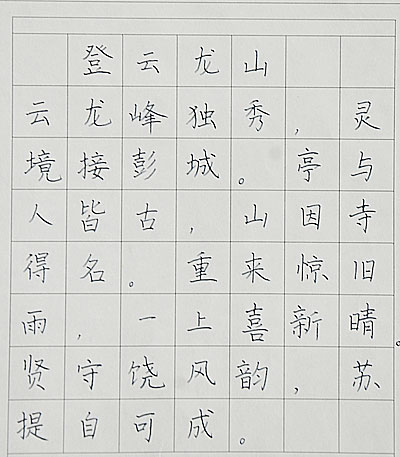 登云龙山
云龙峰独秀，灵
境接彭城。亭与
人皆古，山因寺
得名。重来惊旧
雨，一上喜新晴。
贤守饶风韵，苏
提自可成。